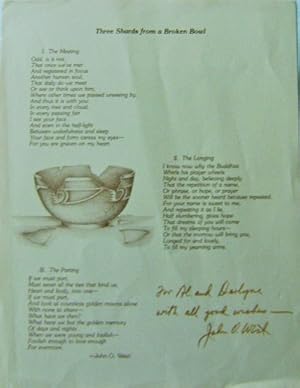 Three Shards from a Broken Bowl
I. The Meeting
Odd, is it not,
That once we've met
And registered in focus
Another human soul,
That daily do we meet
Or see or think upon him,
Where other times we passed unseeing by.
And thus it is with you:
In every tree and cloud,
In every passing fair
I see your face
And even in the half-light
Between wakefulness and sleep
Your face and form caress my eyes—
For you are graven on my heart.
II. The Longing
I know now why the Buddhist
Whirls his prayer wheels
Night and day, believing deeply
That the repetition of a name,
Or phrase, or hope, or prayer
Will be the sooner heard because repeated.
For your name is sweet to me,
And repeating it as I lie,
Half slumbering, gives hope
That dreams of you will come
To fill my sleeping hours—
Or that the morrow will bring you,
Longed for and lovely,
To fill my yearning arms.
III. The Parting
If we must part,
Must sever all the ties that bind us,
Heart and body, into one—
If we must part,
And look at countless golden moons alone
With none to share—
What have we then?
What have we but the golden memory
Of days and nights
When we were young and foolish—
Foolish enough to love enough
For evermore.
—John O. West
For Al and Darlyne
with all good wishes—
John O West